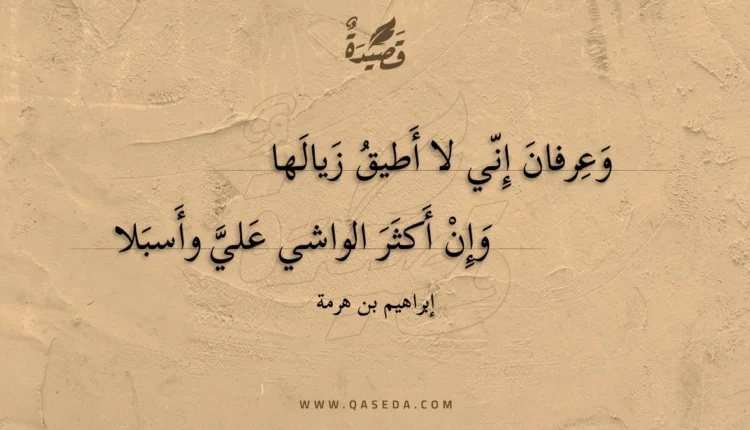 قَصِيْدَةٌ
وَعِرفانَ إِنّي لا أَطيقُ زَيالَها
وَإِنْ أَكثَرَ الواشي عَليَّ وأَسبَلا
إبراهيم بن هرمة
WWW.QASEDA.COM